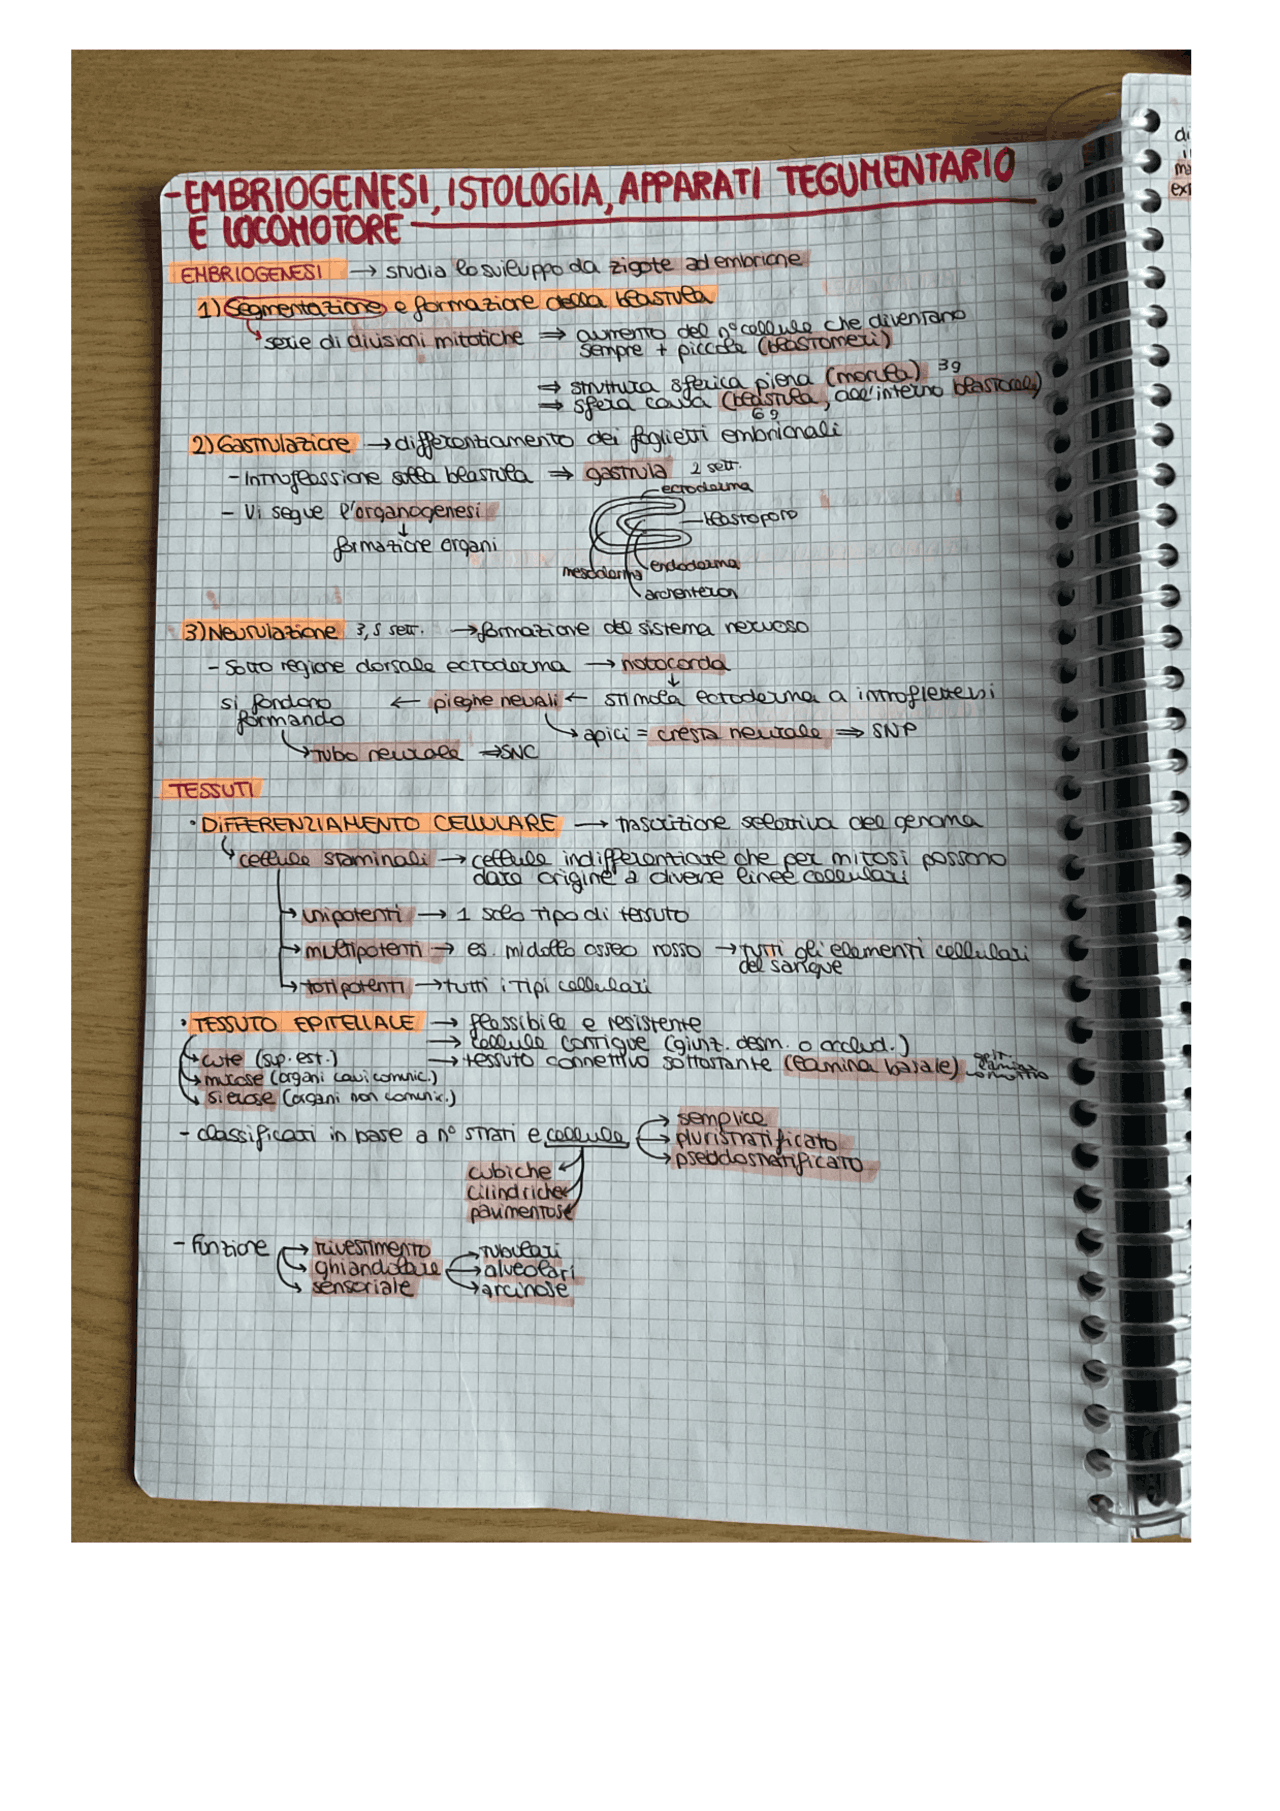 -EMBRIOGENESI, ISTOLOGIA, APPARATI TEGUMENTARIO
E LOCOMOTORE
EMBRIOGENESI → studia lo sviluppo da zigote ad embrione
1) Segmentazione e formazione della blastula
serie di divisioni mitotiche ⇒ aumento del n° cellule che diventano
sempre + piccole (blastomeri)
⇒ struttura sferica piena (morula) 3g
⇒ sfera cava (blastula, all'interno blastocele)
6g
2) Gastrulazione → differenziamento dei foglietti embrionali
- Introflessione sulla blastula ⇒ gastrula 2 sett.
ectoderma
- Vi segue l'organogenesi
blastoporo
↓
formazione organi
endoderma
mesoderma
archenteron
3) Neurulazione 3,5 sett. → formazione del sistema nervoso
- Sotto regione dorsale ectoderma → notocorda
↓
si fondono ← pieghe neurali ← stimola ectoderma a introflettersi
formando
apici = cresta neurale ⇒ SNP
tubo neurale ⇒ SNC
TESSUTI
· DIFFERENZIAMENTO CELLULARE → trascrizione selettiva del genoma
cellule staminali → cellule indifferenziate che per mitosi possono
dare origine a diverse linee cellulari
→ unipotenti → 1 solo tipo di tessuto
→ multipotenti → es. midollo osseo rosso → tutti gli elementi cellulari
del sangue
→ totipotenti → tutti i tipi cellulari
· TESSUTO EPITELIALE → flessibile e resistente
→ cellule contigue (giunz. desm. o occlud.)
→ cute (sup. est.) → tessuto connettivo sottostante (lamina basale)
→ mucose (organi cavi comunic.)
→ sierose (organi non comunic.)
→ semplice
- classificati in base a n° strati e cellule → pluristratificato
→ pseudostratificato
cubiche
cilindriche
pavimentose
- funzione → rivestimento → tubulari
→ ghiandolare → alveolari
→ sensoriale → arcinose
di
ma
exp